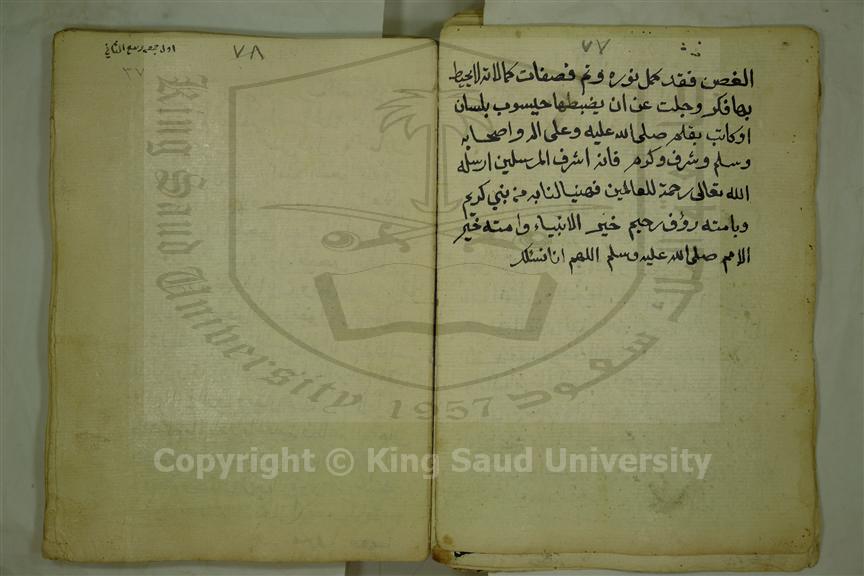 ٧٧
الغصن فقد كمل نوره وتم فصفات كمالاته لا يحيط
بها فكر وجلت عن ان يضبطها حيسوب بلسان
او كاتب بقلم صلى الله عليه وعلى اله واصحابه
وسلم وشرف وكرم فانه اشرف المرسلين ارسله
الله تعالى رحمة للعالمين فهنيا لنا به من نبي كريم
وبامته رؤف رحيم خير الانبياء وامته خير
الامم صلى الله عليه وسلم اللهم انا نسئلك
٧٨
اول جمعه ربيع الثاني
٣٧
King Saud University
1957
جامعة الملك سعود
Copyright © King Saud University